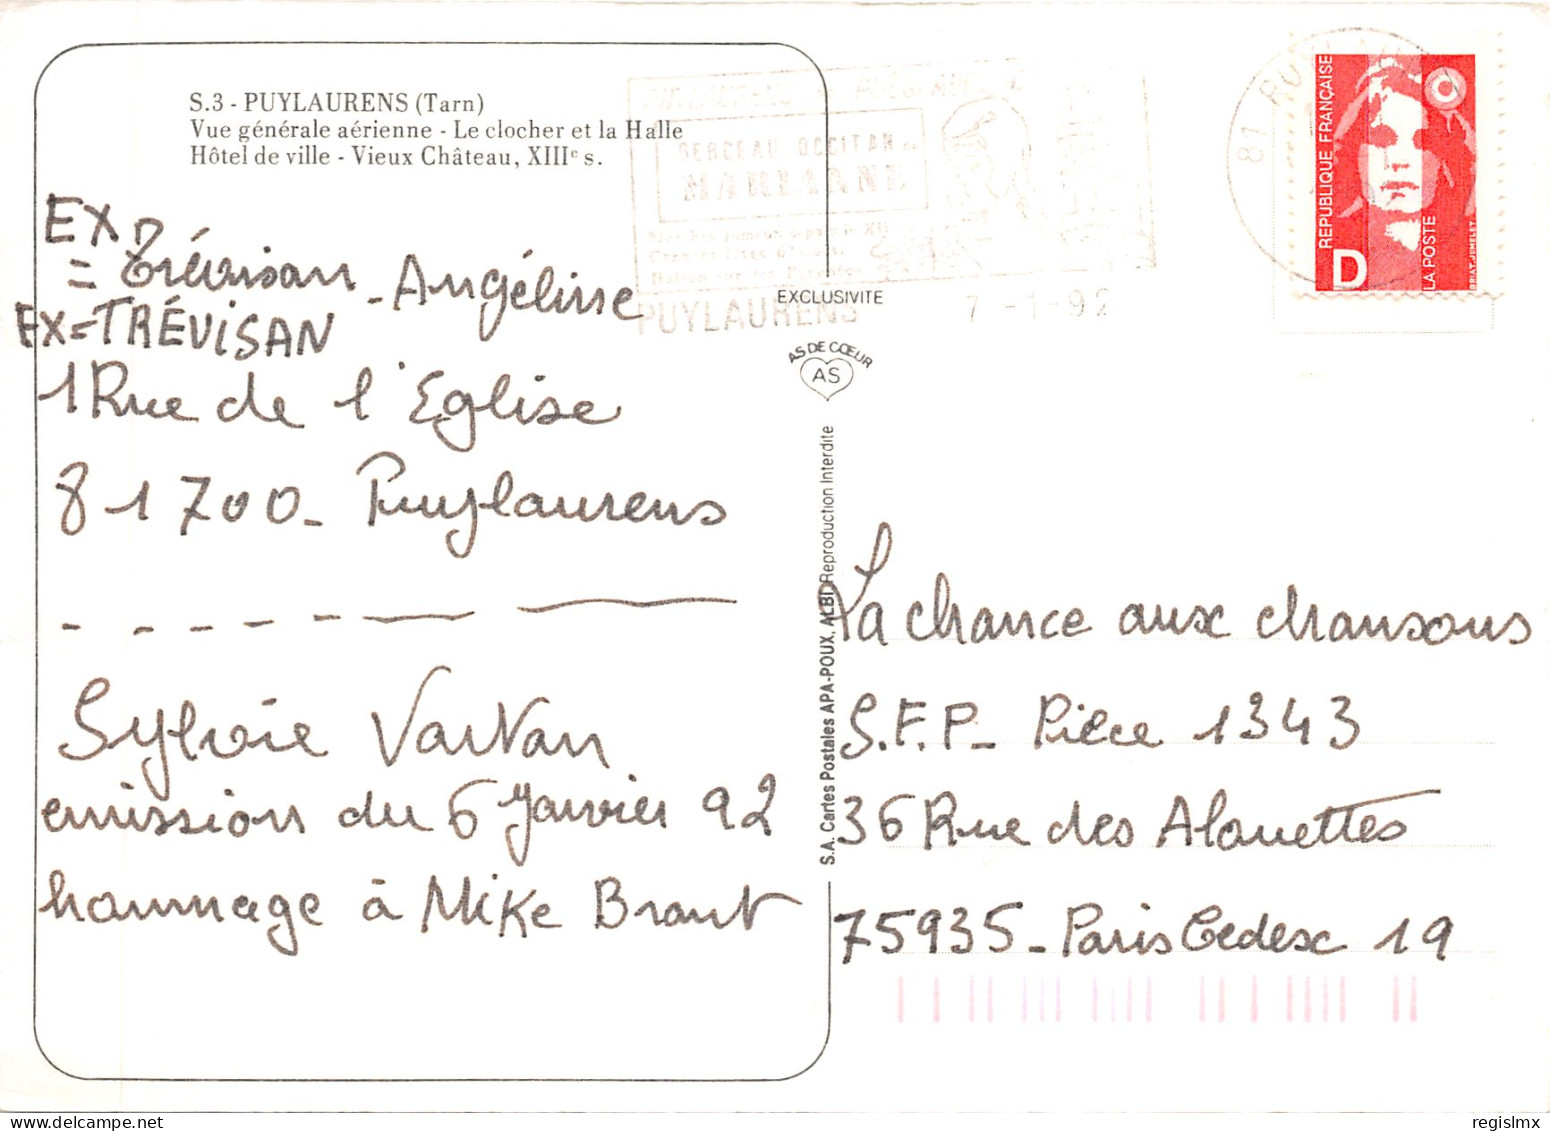 S.3 - PUYLAURENS (Tarn)
Vue générale aérienne - Le clocher et la Halle
Hôtel de ville - Vieux Château, XIIIe s.
EX
= Trévisan - Angéline
EX = TRÉVISAN
1 Rue de l'Eglise
81700 - Puylaurens
Sylvie Vartan
emission du 6 Janvier 92
hommage à Mike Brant
BERCEAU OCCITAN de
MARIANNE
PUYLAURENS
7 -1-92
EXCLUSIVITE
AS DE CŒUR
AS
S.A. Cartes Postales APA-POUX, ALBI Reproduction Interdite
81
REPUBLIQUE FRANÇAISE
D
LA POSTE
BRIAT-JUMELET
La chance aux chansons
S.F.P - Pièce 1343
36 Rue des Alouettes
75935 - Paris Cedex 19
regislmx